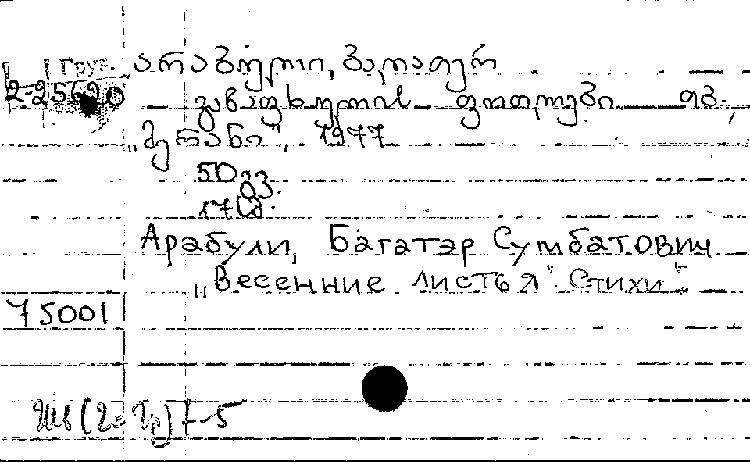 Груз. არაბული, ბაღათერ
2-25620 გაზაფხულის ფოთლები თბ.,
„მერანი", 1977
50 გვ.
Арабули, Багатэр Сумбатович
„Весенние листья" Стихи"
75001